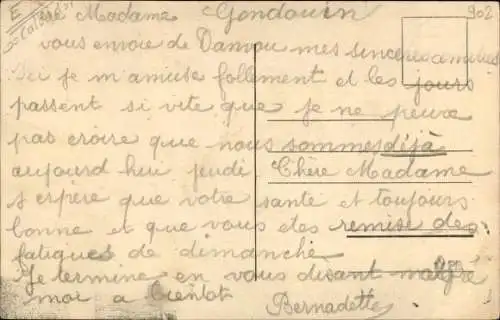 E
Calvados
902
ère Madame Gondouin
vous envoie de Damvou mes sincères amitiés
Ici je m'amuse follement et les jours
passent si vite que je ne peux
pas croire que nous sommes déjà
aujourd hui jeudi. Chère Madame
j'espère que votre santé et toujours
bonne et que vous êtes remise des
fatigues de dimanche
Je termine en vous disant malgré
moi a bientot
Bernadette